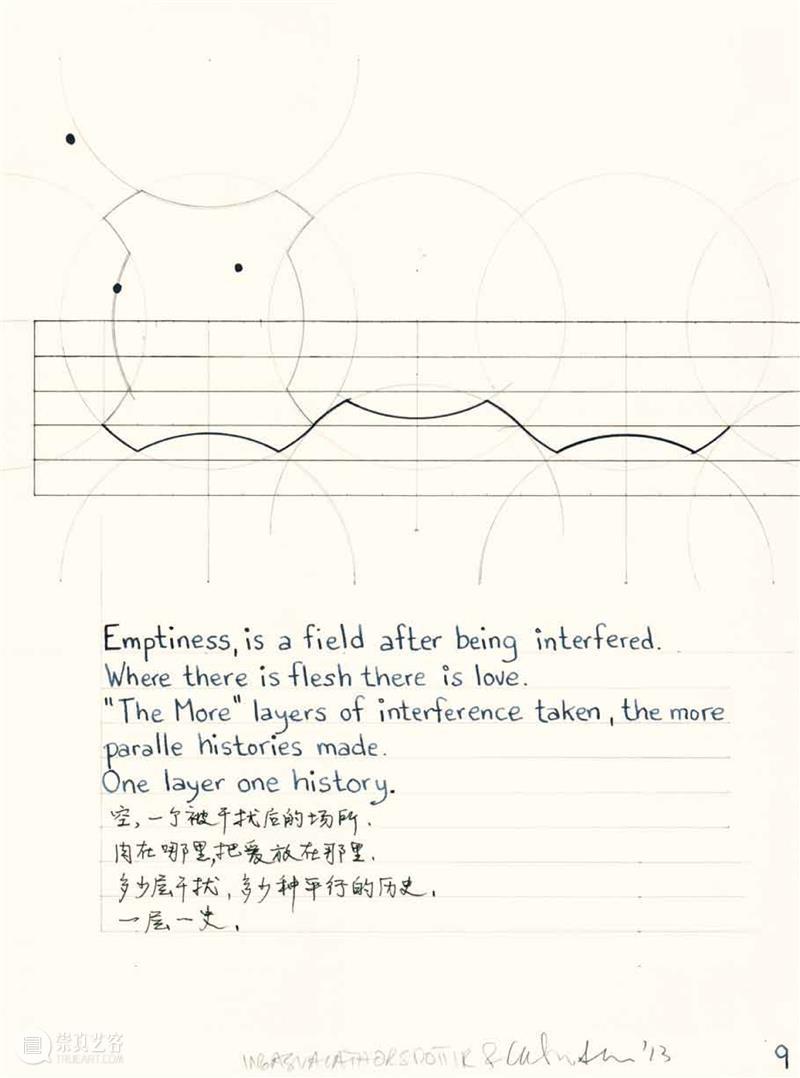 Emptiness, is a field after being interfered.
Where there is flesh there is love.
"The More" layers of interference taken, the more
paralle histories made.
One layer one history.
空,一个被干扰后的场所.
肉在哪里,把爱放在那里.
多少层干扰,多少种平行的历史.
一层一史.
INGASVALATHORSDOTTIR & '13
9
崇真艺客
TRUEART.COM